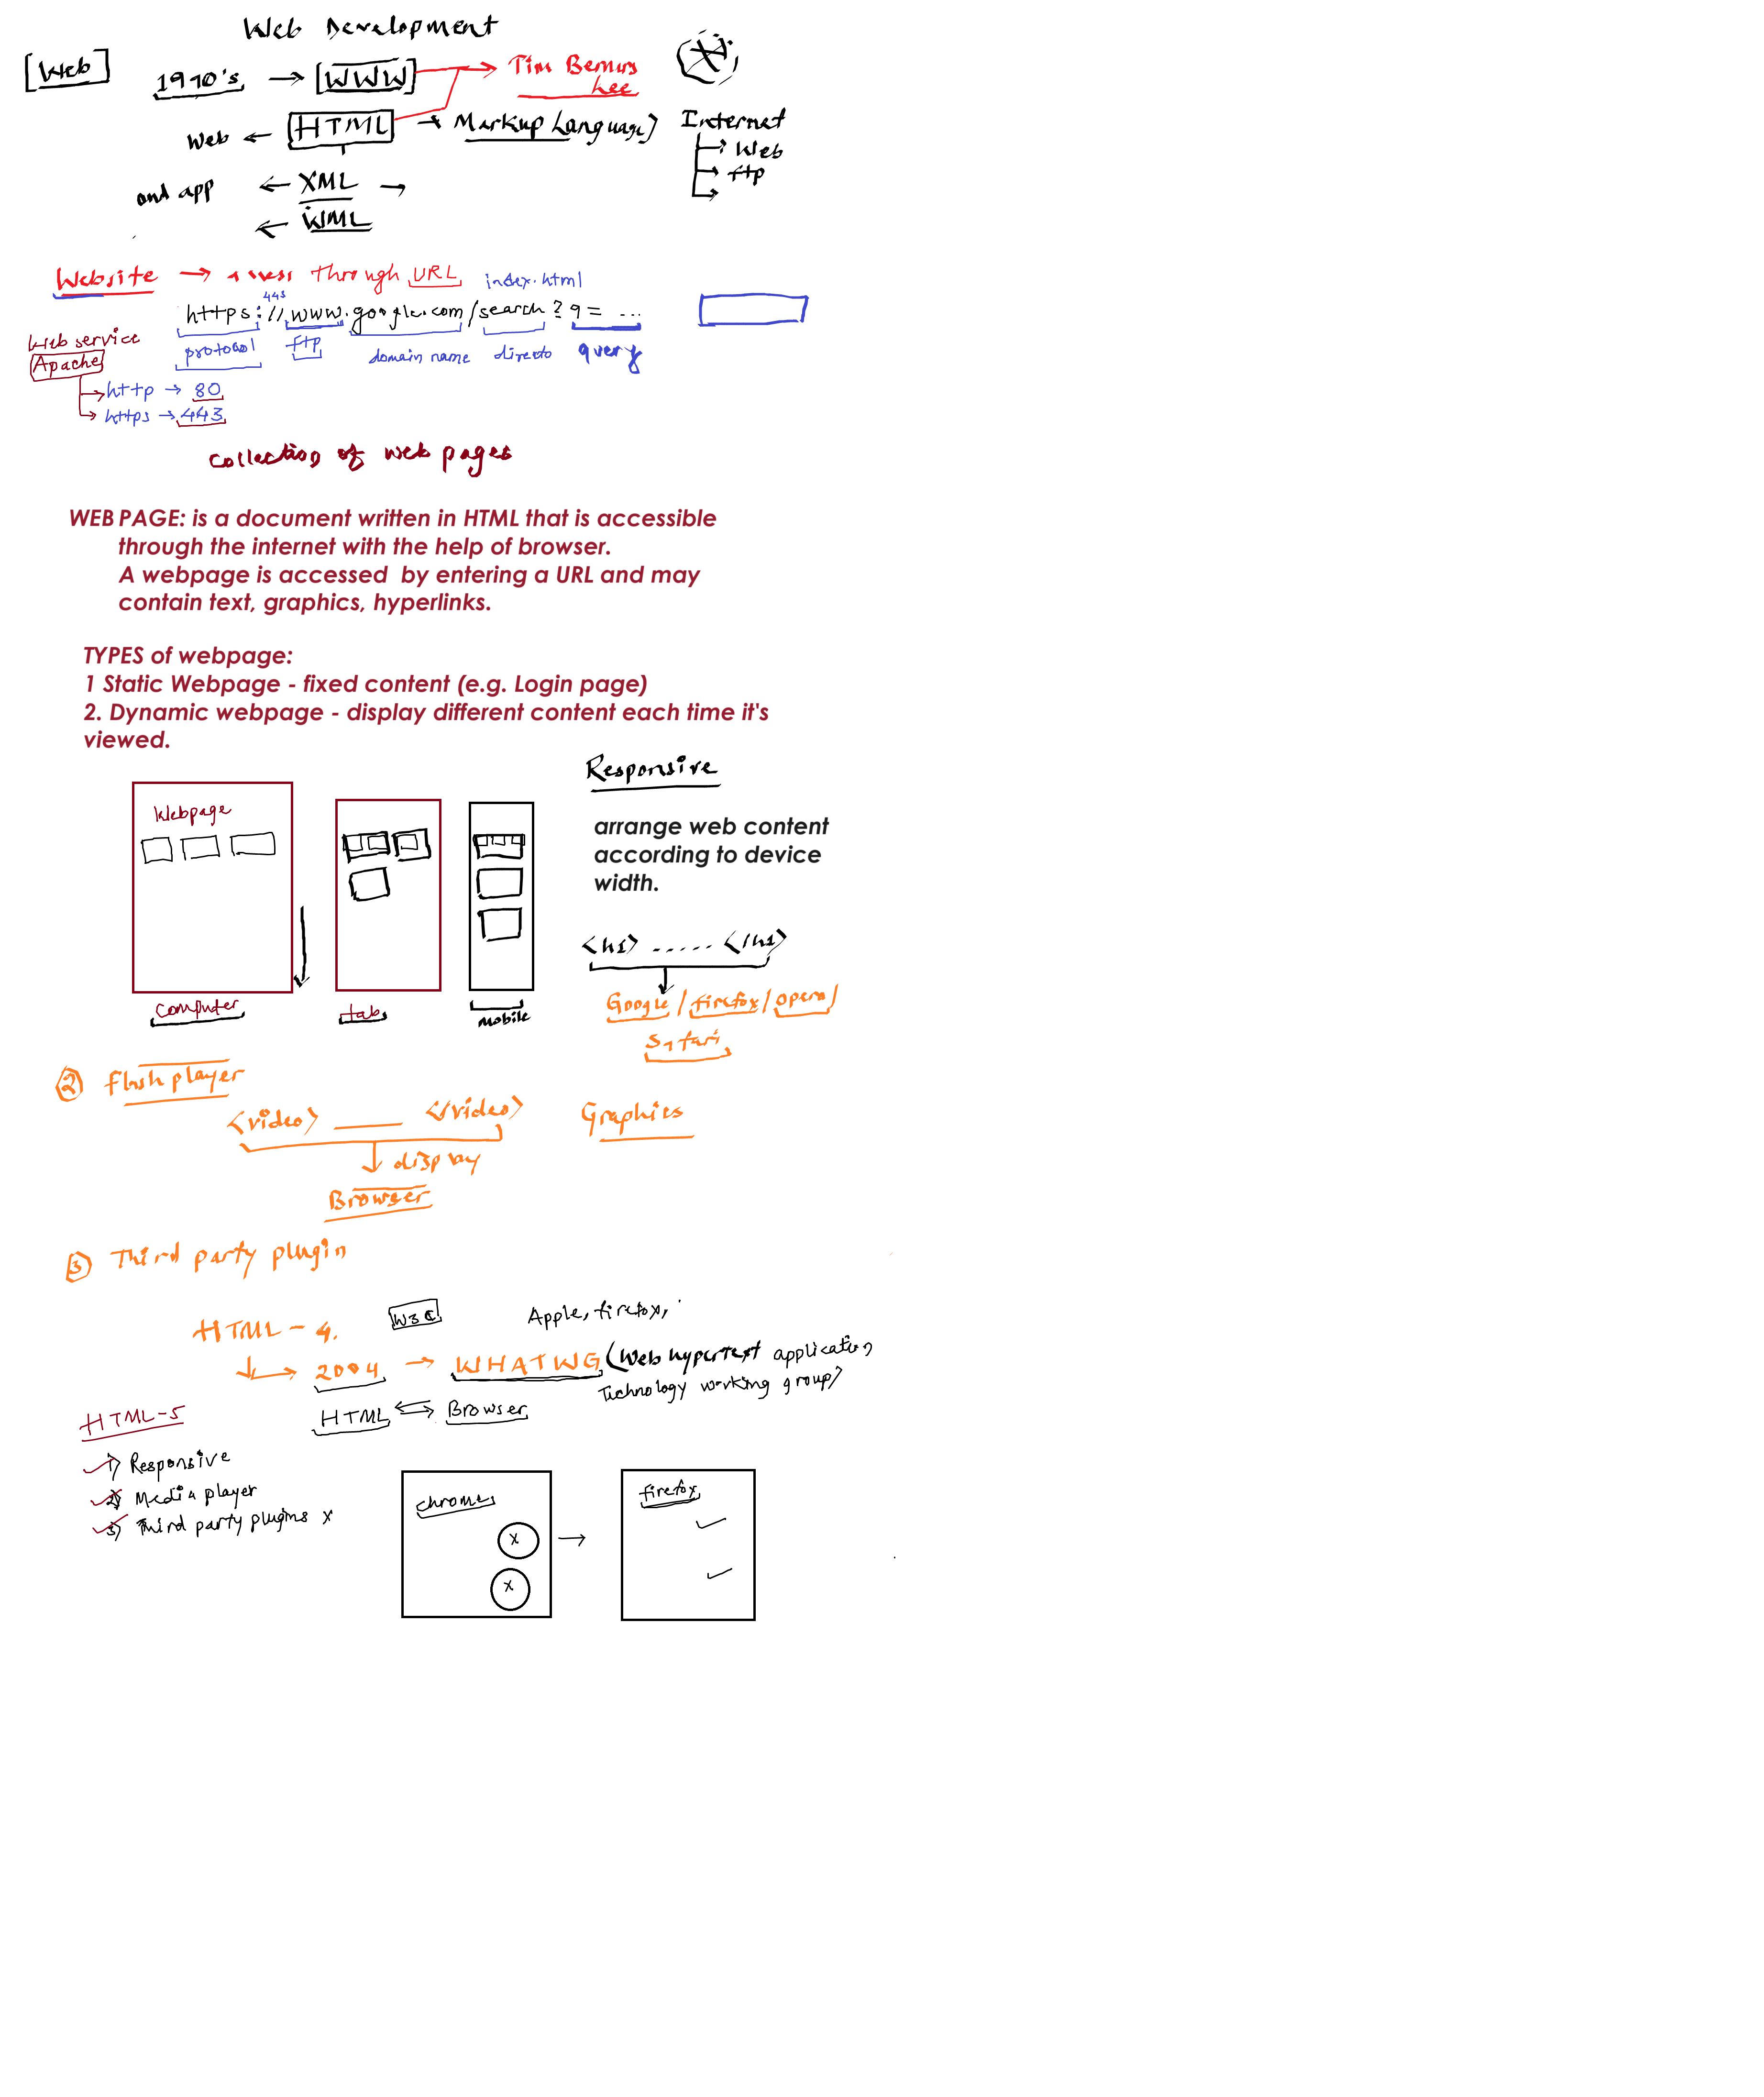 Web Development
[Web]
1990's → [WWW] → Tim Berners Lee
Web ← HTML → Markup Language)
and app ← XML →
← WML
Internet
→ Web
→ ftp
→
Website → access through URL
index.html
443
https://www.google.com/search?q= ...
protocol ftp domain name directo query
Web service
Apache
→ http → 80
→ https → 443
collection of web pages
WEB PAGE: is a document written in HTML that is accessible
through the internet with the help of browser.
A webpage is accessed by entering a URL and may
contain text, graphics, hyperlinks.
TYPES of webpage:
1 Static Webpage - fixed content (e.g. Login page)
2. Dynamic webpage - display different content each time it's
viewed.
Webpage
computer
tab
mobile
Responsive
arrange web content
according to device
width.
<h1> ..... </h1>
Google / firefox / opera /
Safari
② flash player
<video> ___ </video>
display
Browser
Graphics
③ Third party plugin
HTML - 4.
W3C
Apple, firefox,
→ 2004 → WHATWG (Web hypertext application
Technology working group)
HTML ⇄ Browser
HTML-5
1) Responsive
2) Media player
3) Third party plugins x
chrome
x
x
→
firefox
✓
✓